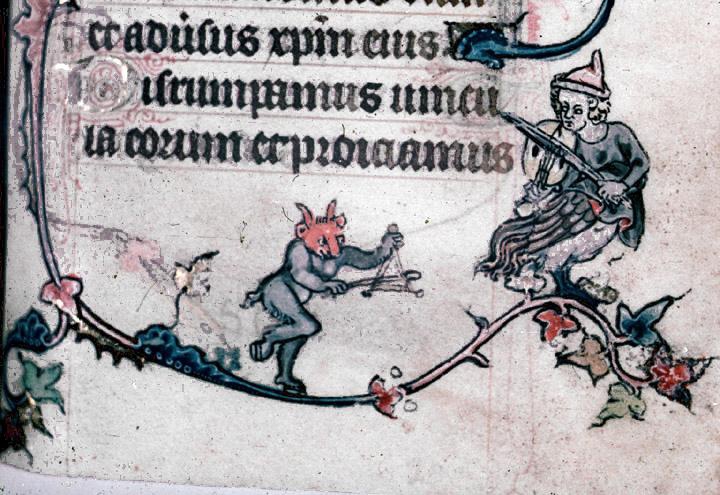 et adůsus xp̄m eius.
Disrumpamus uincu
la eorum et proiciamus